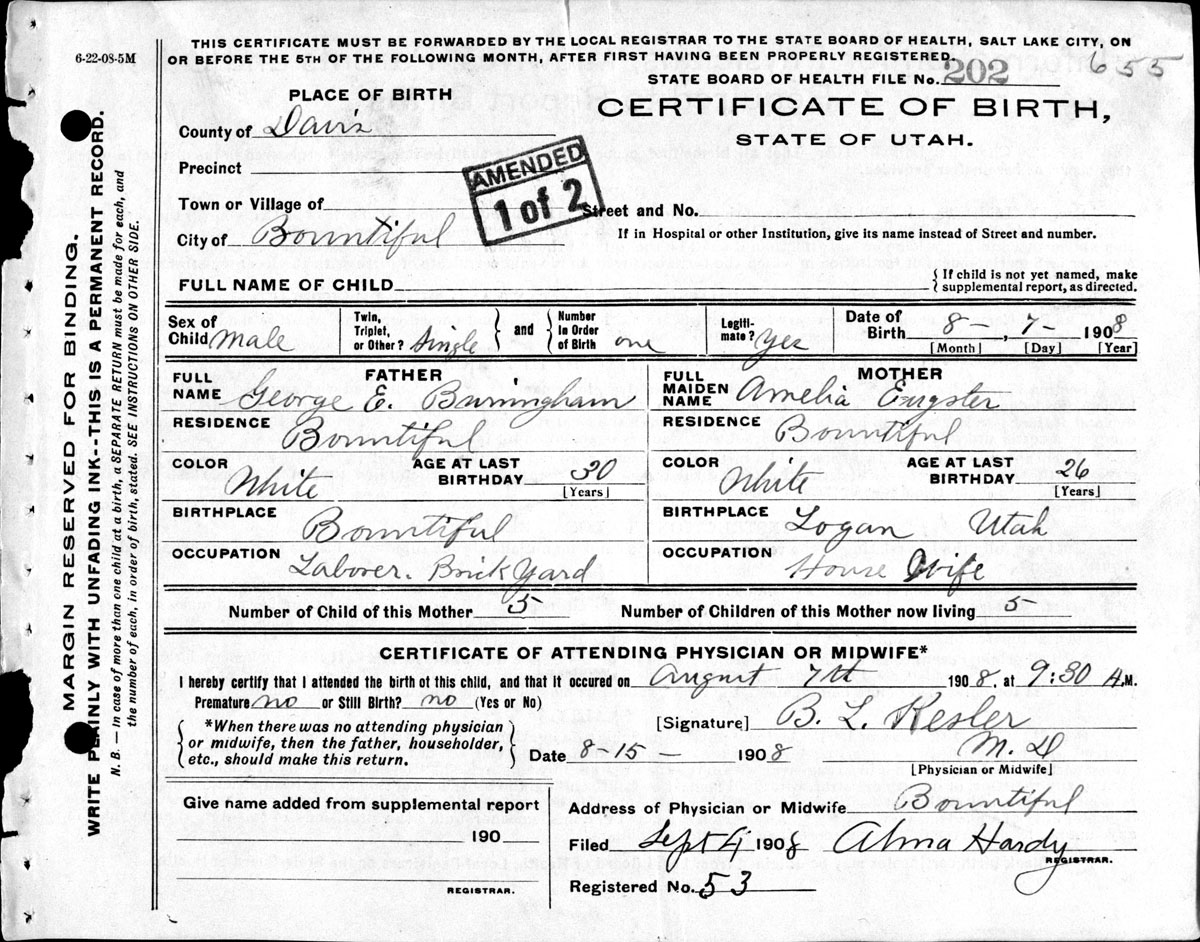 6-22-08-5M
THIS CERTIFICATE MUST BE FORWARDED BY THE LOCAL REGISTRAR TO THE STATE BOARD OF HEALTH, SALT LAKE CITY, ON
OR BEFORE THE 5TH OF THE FOLLOWING MONTH, AFTER FIRST HAVING BEEN PROPERLY REGISTERED.
655
STATE BOARD OF HEALTH FILE No. 202
PLACE OF BIRTH
CERTIFICATE OF BIRTH,
STATE OF UTAH.
County of Davis
Precinct
AMENDED
1 of 2
Town or Village of
Street and No.
City of Bountiful
If in Hospital or other Institution, give its name instead of Street and number.
FULL NAME OF CHILD
{ If child is not yet named, make
{ supplemental report, as directed.
Sex of Child Male
Twin, Triplet, or Other? Single } and { Number in Order of Birth one
Legiti-mate? Yes
Date of Birth 8 - , 7 - 1908
[Month] [Day] [Year]
FATHER
FULL NAME George E. Burningham
RESIDENCE Bountiful
COLOR White
AGE AT LAST BIRTHDAY 30
[Years]
BIRTHPLACE Bountiful
OCCUPATION Laborer. Brick Yard
MOTHER
FULL MAIDEN NAME Amelia Eugster
RESIDENCE Bountiful
COLOR White
AGE AT LAST BIRTHDAY 26
[Years]
BIRTHPLACE Logan Utah
OCCUPATION House Wife
Number of Child of this Mother 5 Number of Children of this Mother now living 5
CERTIFICATE OF ATTENDING PHYSICIAN OR MIDWIFE*
I hereby certify that I attended the birth of this child, and that it occured on August 7th 1908, at 9:30 A.M.
Premature no or Still Birth? no (Yes or No)
{ *When there was no attending physician
or midwife, then the father, householder,
etc., should make this return. }
[Signature] B. L. Kesler
M. D
[Physician or Midwife]
Date 8-15- 1908
Give name added from supplemental report
190
REGISTRAR.
Address of Physician or Midwife Bountiful
Filed Sept 4 1908 Alma Hardy
REGISTRAR.
Registered No. 53
MARGIN RESERVED FOR BINDING.
WRITE PLAINLY WITH UNFADING INK--THIS IS A PERMANENT RECORD.
N. B. — In case of more than one child at a birth, a SEPARATE RETURN must be made for each, and
the number of each, in order of birth, stated. SEE INSTRUCTIONS ON OTHER SIDE.